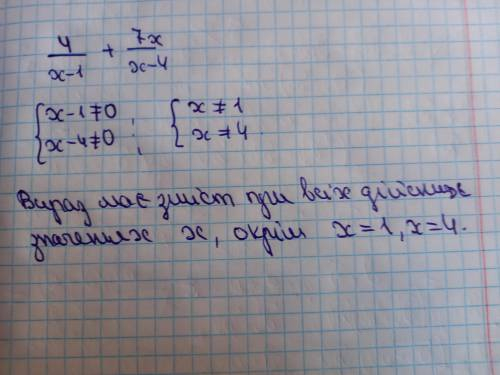 4/(x-1) + 7x/(x-4)
{x-1≠0; {x≠1
{x-4≠0; {x≠4.
Вираз має зміст при всіх дійсних
значеннях x, окрім x=1, x=4.